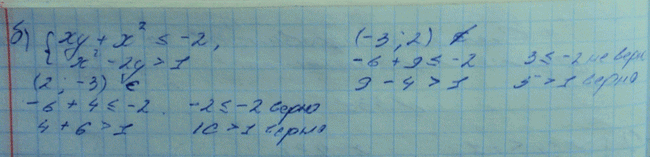 б) { xy + x² ≤ -2,
x² - 2y > 1
(2; -3) ∈
-6 + 4 ≤ -2. -2 ≤ -2 верно
4 + 6 > 1 10 > 1 верно
(-3; 2) ∉
-6 + 9 ≤ -2 3 ≤ -2 не верн
9 - 4 > 1 5 > 1 верно